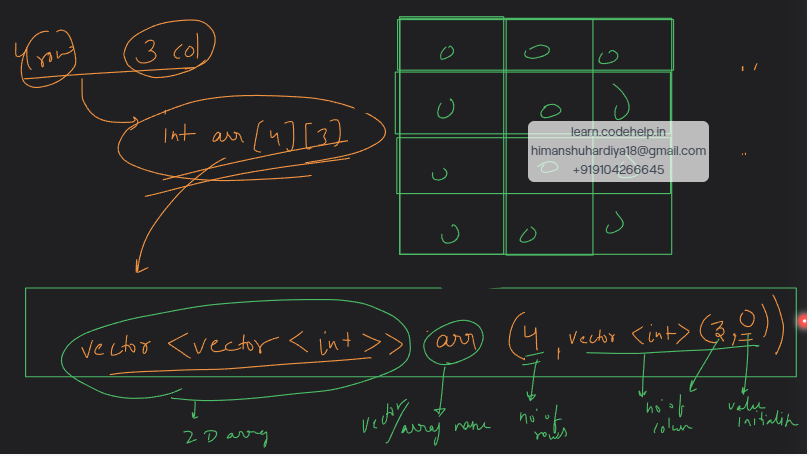 4 row 3 col
int arr [4][3]
0 0 0
0 0 0
0 0 0
0 0 0
learn.codehelp.in
himanshuhardiya18@gmail.com
+919104266645
vector <vector <int>> arr (4, vector <int> (3, 0))
2D array
vector/array name
no' of rows
no' of colum
value initialize